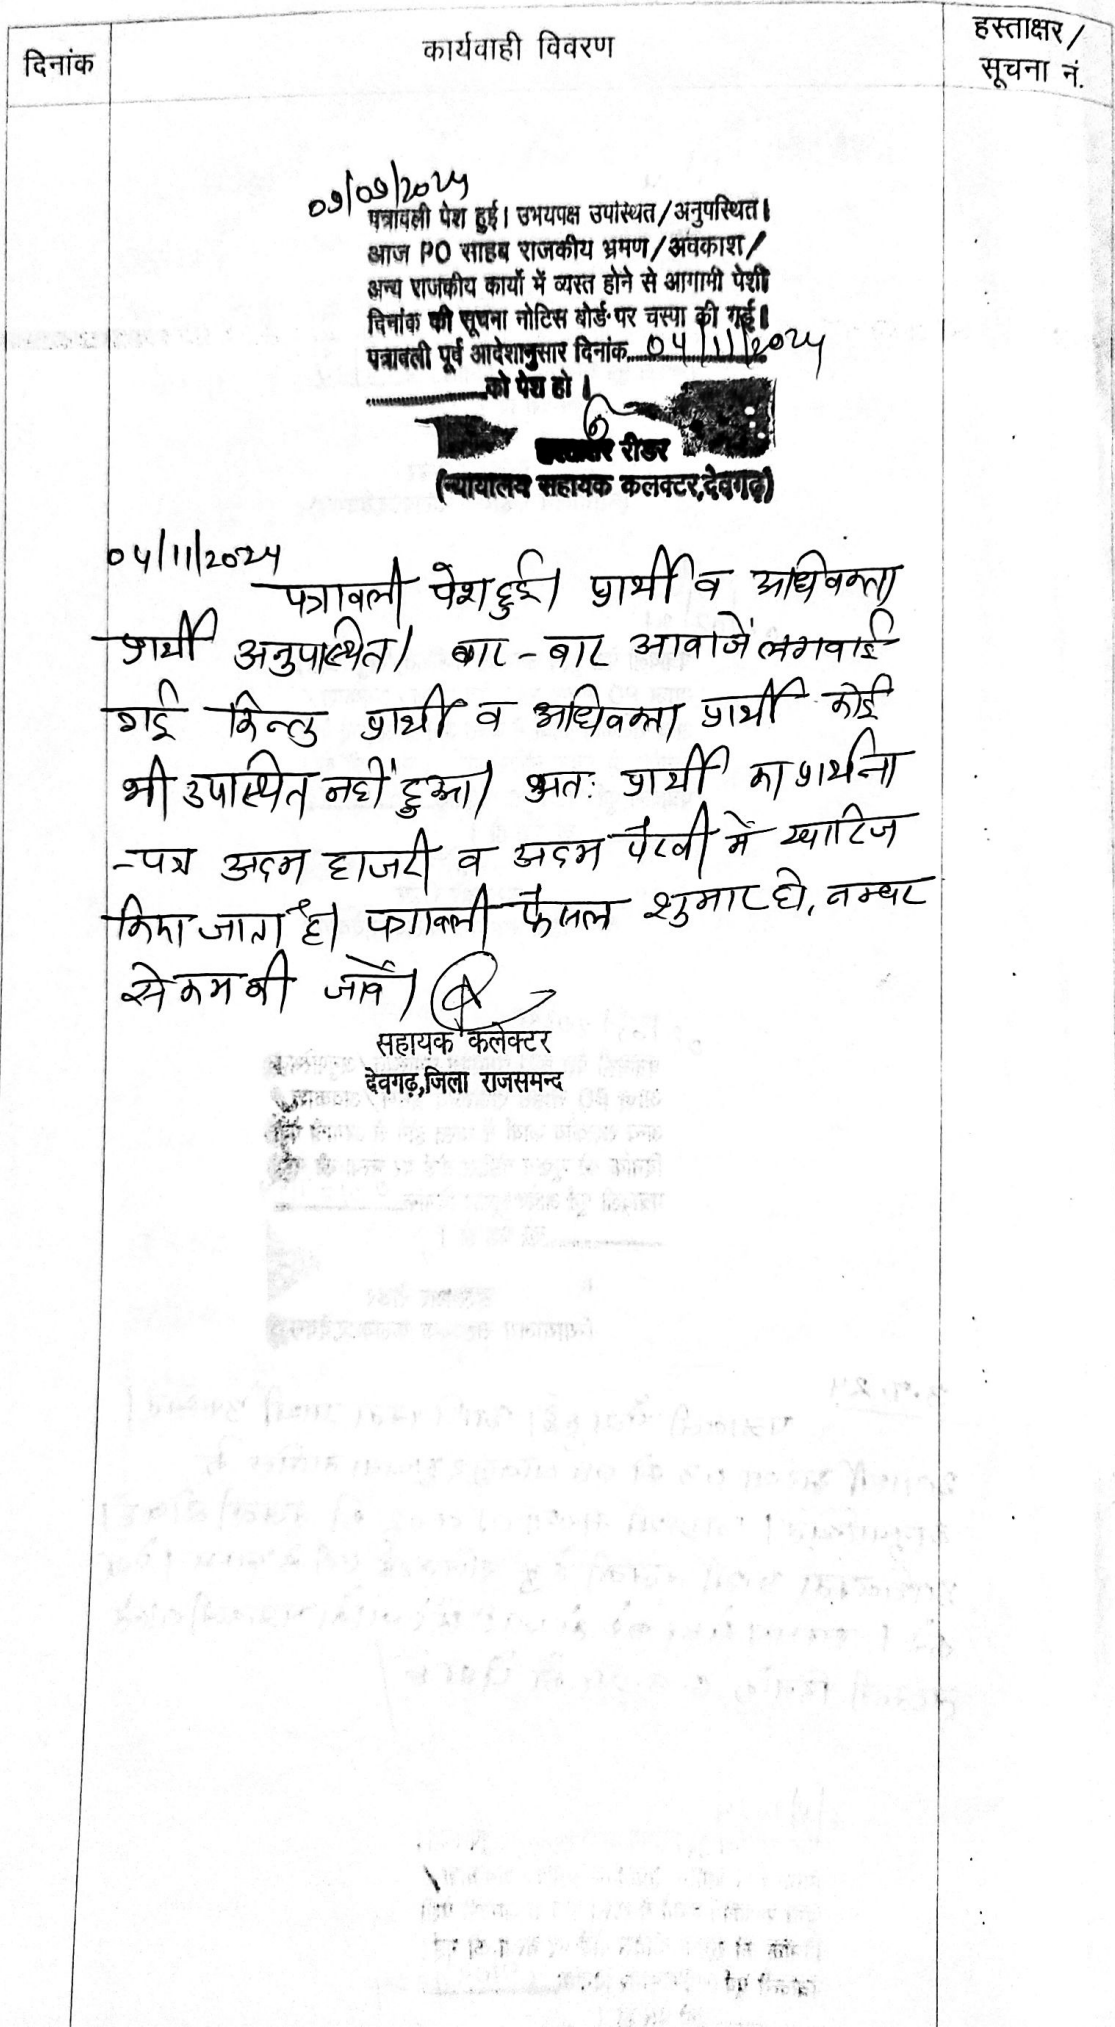 दिनांक
कार्यवाही विवरण
हस्ताक्षर/
सूचना नं.
09/09/2024
पत्रावली पेश हुई। उभयपक्ष उपस्थित/अनुपस्थित।
आज PO साहब राजकीय भ्रमण/अवकाश/
अन्य राजकीय कार्यो में व्यस्त होने से आगामी पेशी
दिनांक की सूचना नोटिस बोर्ड पर चस्पा की गई।
पत्रावली पूर्व आदेशानुसार दिनांक....04/11/2024
....................को पेश हो।
हस्ताक्षर रीडर
(न्यायालय सहायक कलक्टर,देवगढ़)
04/11/2024
पत्रावली पेश हुई। प्रार्थी व अधिवक्ता
प्रार्थी अनुपास्थित। बार-बार आवाजें लगवाई
गई किन्तु प्रार्थी व अधिवक्ता प्रार्थी कोई
भी उपास्थित नहीं हुआ। अतः प्रार्थी का प्रार्थना
-पत्र अदम हाजरी व अदम पैरवी में खारिज
किया जाता है। पत्रावली फैसल शुमार हो, नम्बर
से कम की जावें।
सहायक कलेक्टर
देवगढ़,जिला राजसमन्द